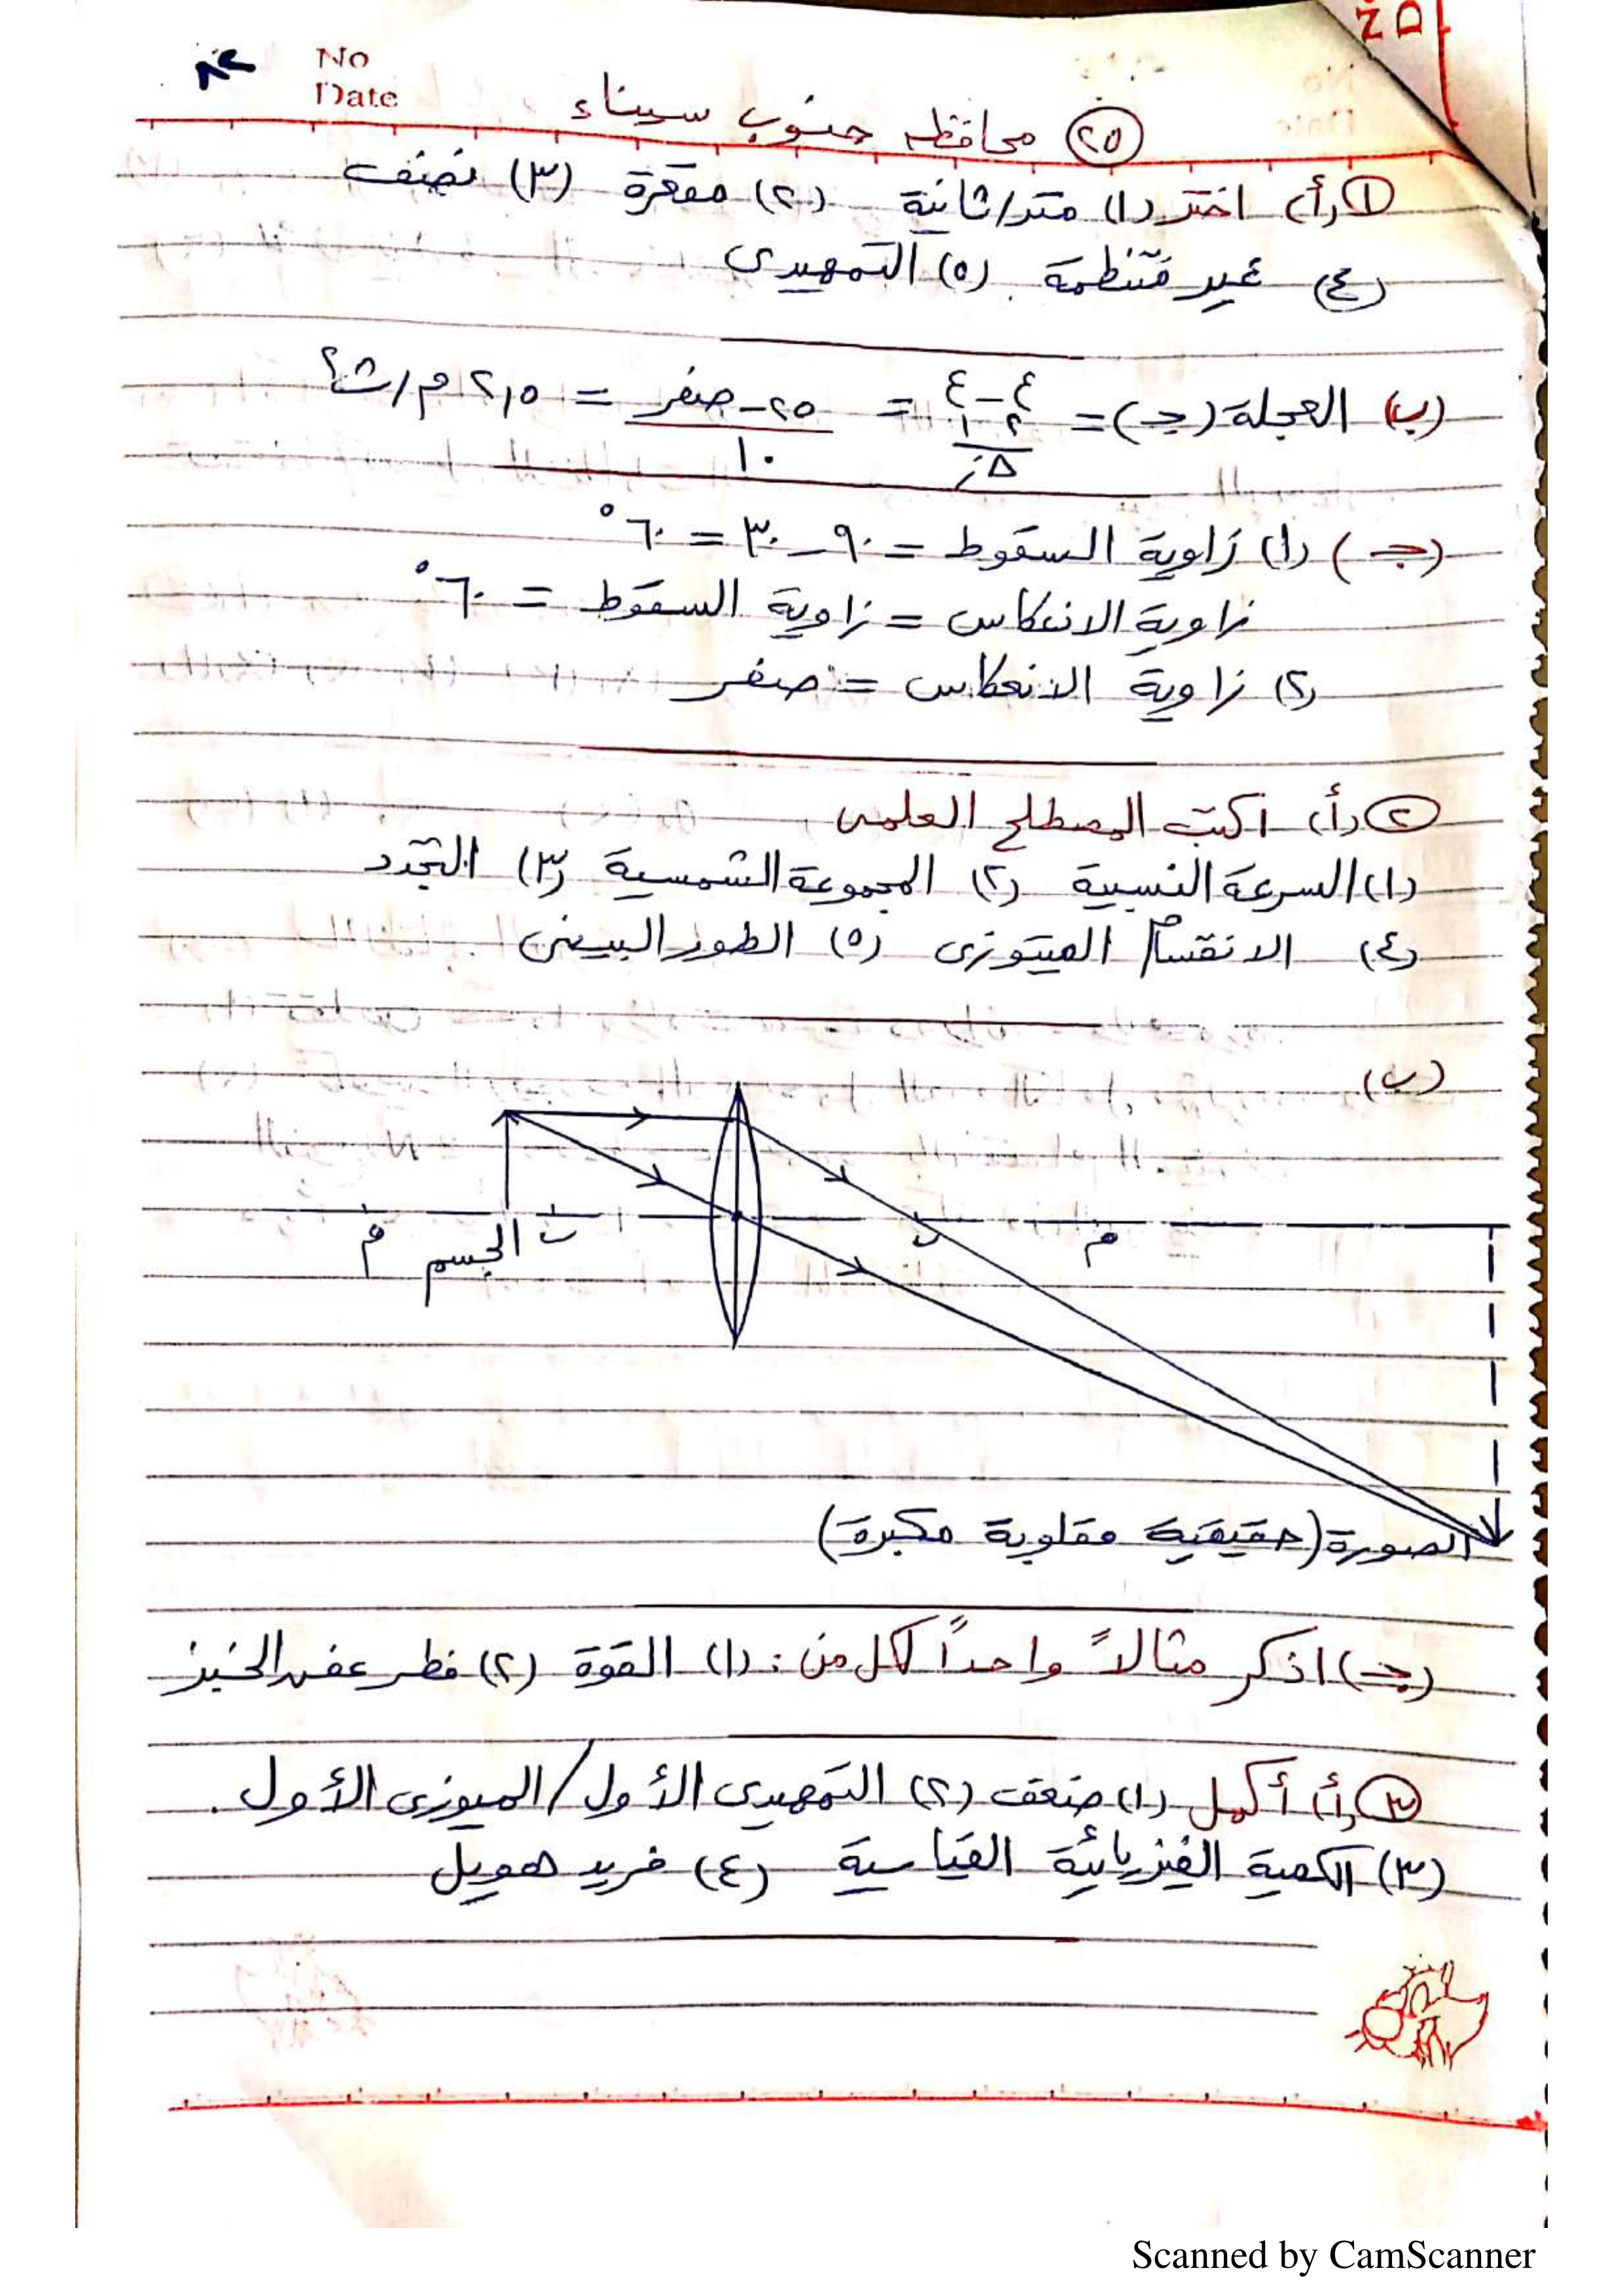 No
Date
٢٥ محافظة جنوب سيناء
١ (أ) اختر (١) متر/ثانية (٢) مقعرة (٣) نصف
(٤) غير منتظمة (٥) التمهيدى
(ب) العجلة (جـ) = ع٢ - ع١ / Δز = ٢٥ - صفر / ١٠ = ٢,٥ م/ث٢
(جـ) (١) زاوية السقوط = ٩٠ - ٣٠ = ٦٠°
زاوية الانعكاس = زاوية السقوط = ٦٠°
(٢) زاوية الانعكاس = صفر
٢ (أ) اكتب المصطلح العلمى
(١) السرعة النسبية (٢) المجموعة الشمسية (٣) التجدد
(٤) الانقسام الميتوزى (٥) الطور البينى
(ب)
م الجسم ب ب م
الصورة (حقيقية مقلوبة مكبرة)
(جـ) اذكر مثالاً واحداً لكل من : (١) القوة (٢) فطر عفن الخبز
٣ (أ) أكمل (١) ضعف (٢) التمهيدى الأول / الميوزى الأول .
(٣) الكمية الفيزيائية القياسية (٤) فريد هويل
Scanned by CamScanner